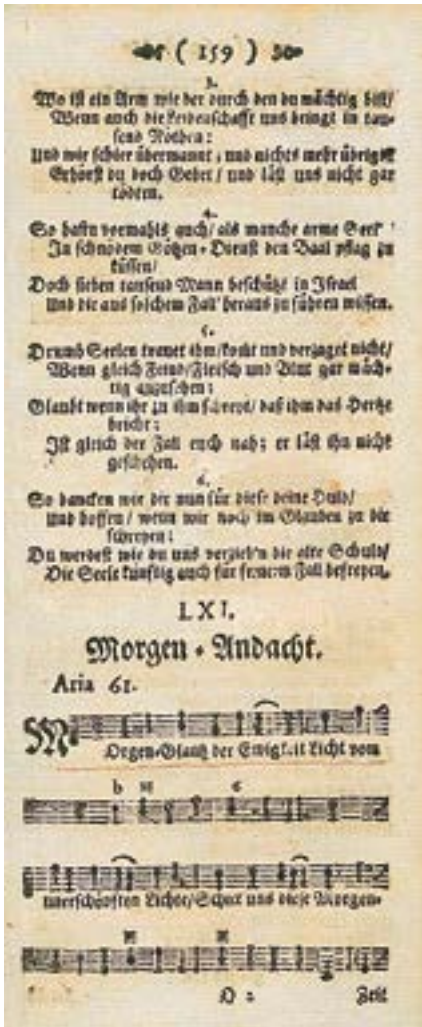 ( 159 )
3.
Wo ist ein Arm wie der durch den du mächtig bist/
Wenn auch die Leidenschafft uns bringt in tau-
send Nöthen:
Und wir schier übermannt; und nichts mehr übrig ist
Erhörst du doch Gebet / und läst uns nicht gar
tödten.
4.
So hastu vormahls auch/ als manche arme Seel'
In schnödem Götzen-Dienst den Baal pflag zu
küssen/
Doch sieben tausend Mann beschützt in Israel
Und die aus solchem Fall heraus zu führen wissen.
5.
Drumb Seelen trauet ihm/ und verzaget nicht/
Wann gleich Feind/ Fleisch und Blut gar mäch-
tig anzusehen:
Glaubt wenn ihr zu ihm schreyt/ daß ihm das Hertze
bricht:
Ist gleich der Fall euch nah; er läst ihn nicht
geschehen.
6.
So dancken wir dir nun für diese deine Huld/
Und hoffen/ wenn wir noch im Glauben zu dir
schreyen:
Du werdest wie du uns verzieh'n die alte Schuld/
Die Seele künftig auch für fernerm Fall befreyen.
LXI.
Morgen-Andacht.
Aria 61.
MOrgen-Glantz der Ewigkeit Licht vom
b 6
unerschöpften Lichte/ Schick uns diese Morgen-
O 2 Zeit